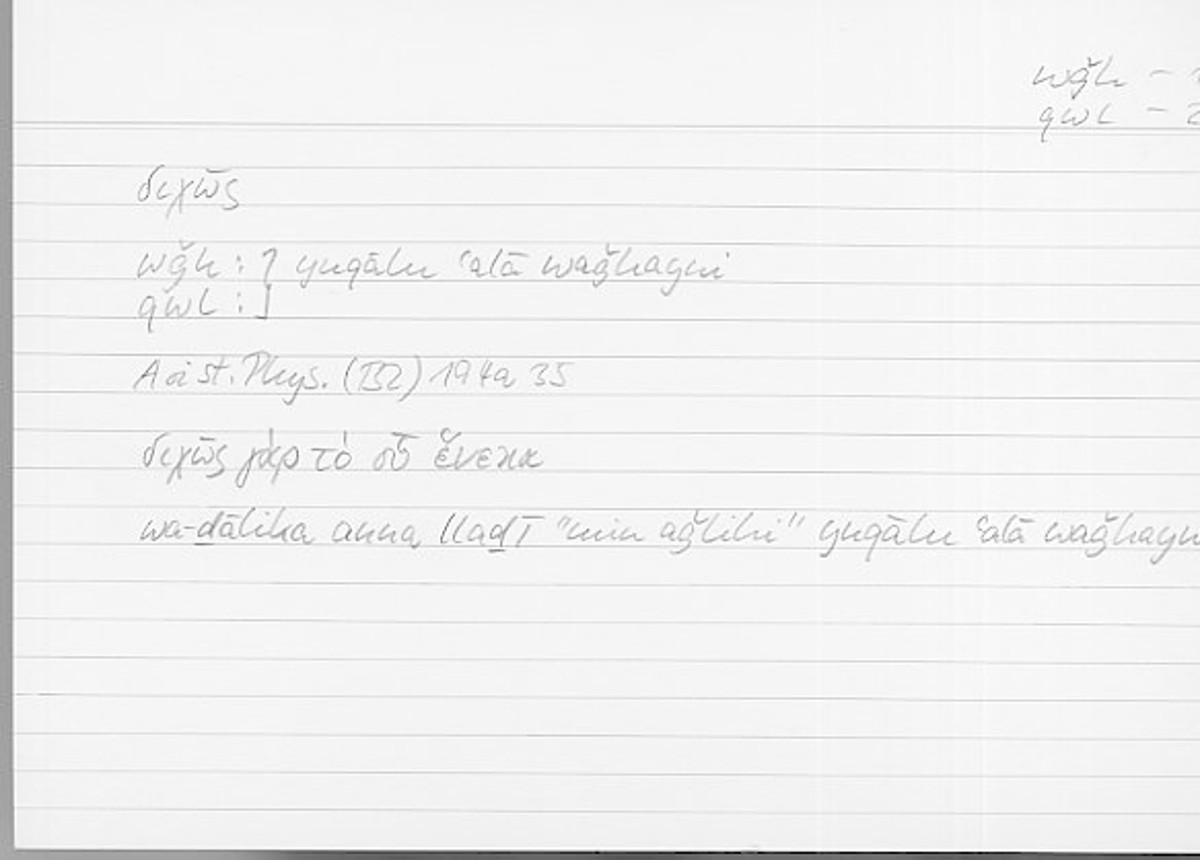 wǧh –
qwl – 2
διχῶς
wǧh : ] yuqālu ʿalā waǧhayni
qwl : ]
Arist. Phys. (B2) 194a 35
διχῶς γὰρ τὸ οὗ ἕνεκα
wa-ḏālika anna llaḏī "min aǧlihi" yuqālu ʿalā